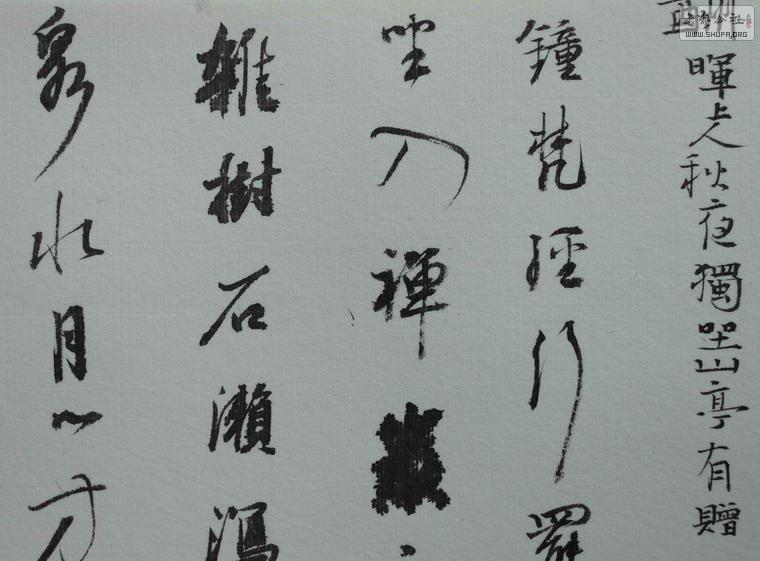 暉上人秋夜獨坐山亭有贈
鐘梵經行罷
坐入禪
雜樹石瀨瀉
泉水月心方
公社
WWW.SHUFA.ORG